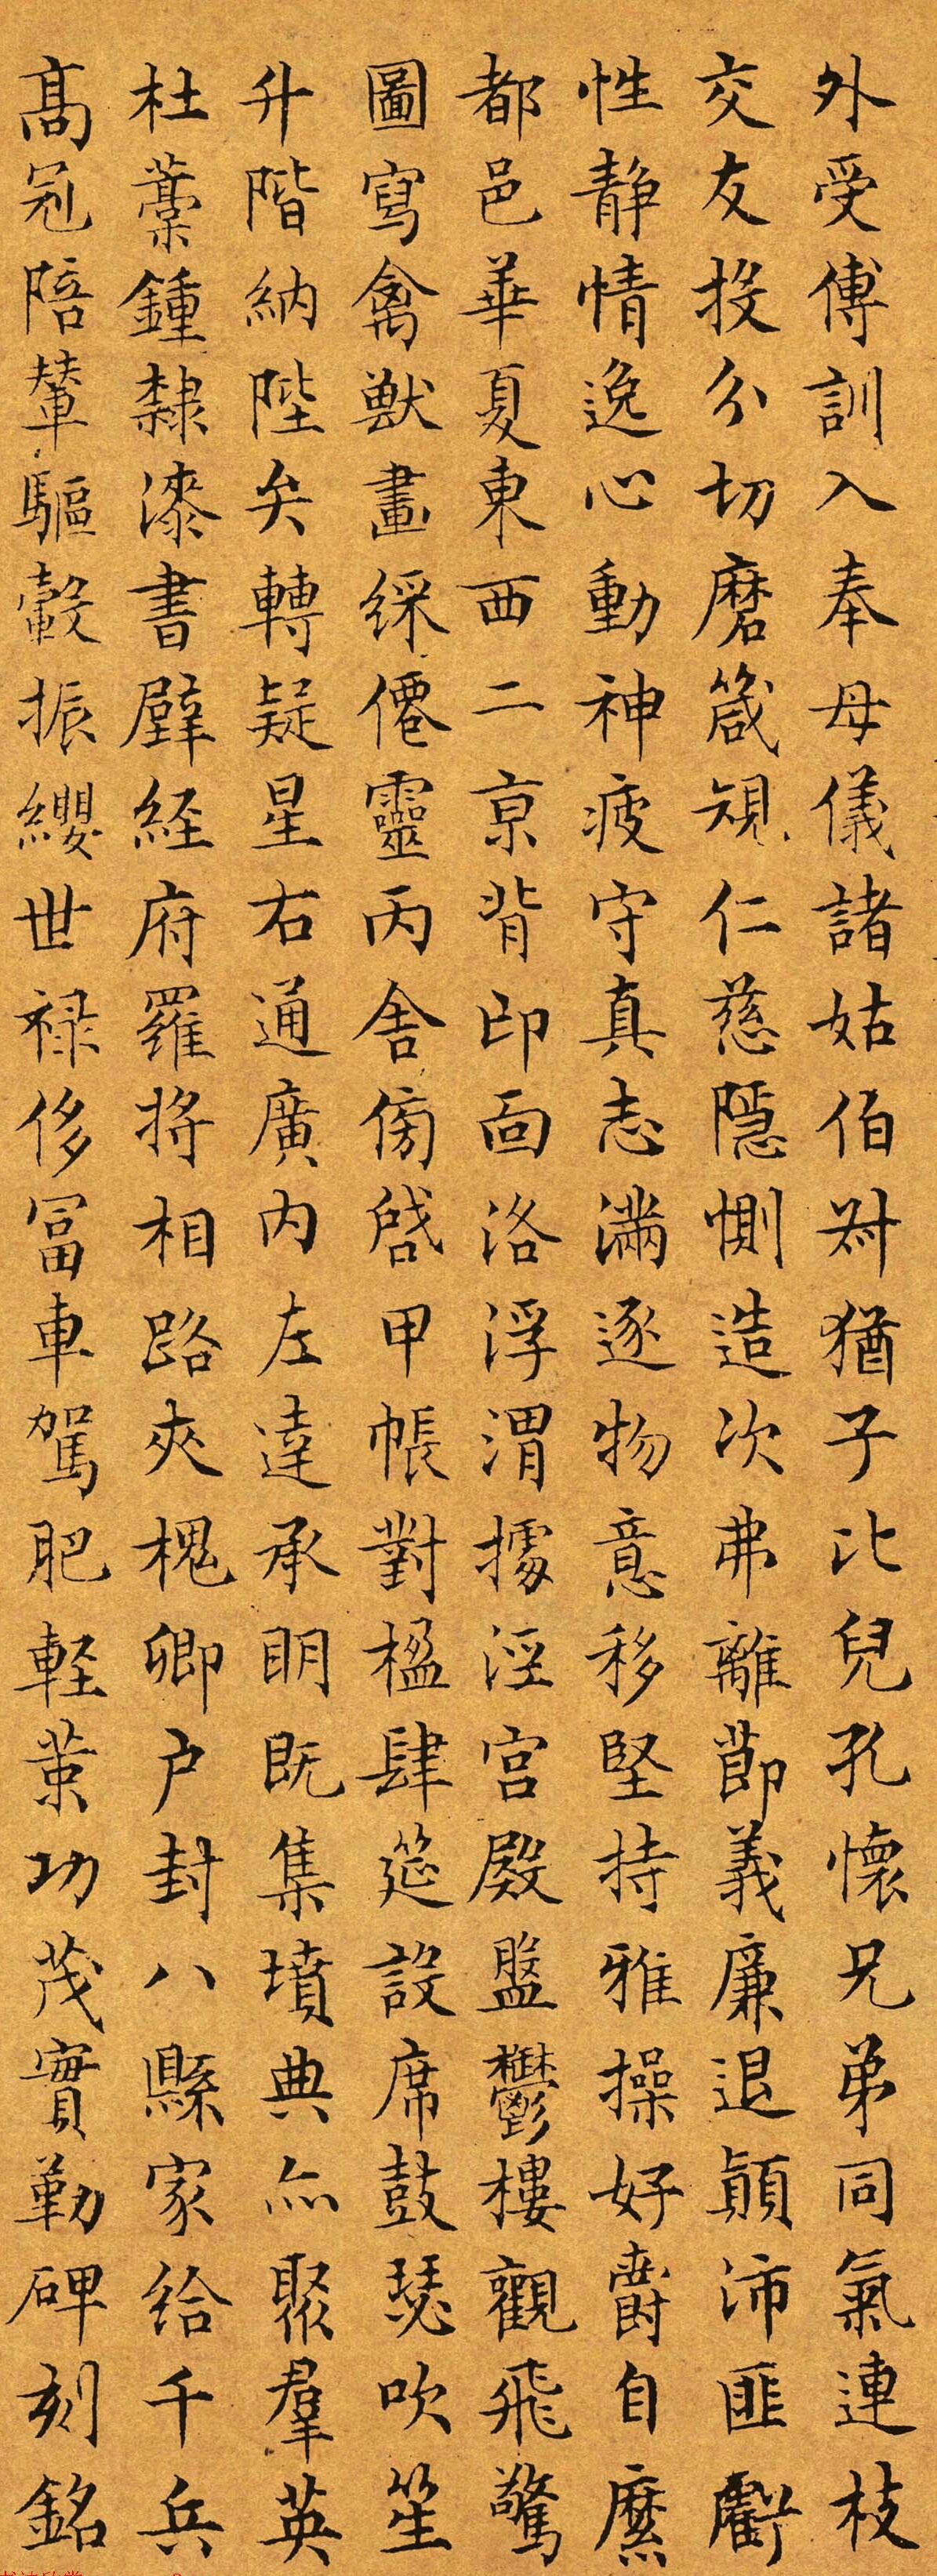 外受傅訓入奉母儀諸姑伯叔猶子比兒孔懷兄弟同氣連枝
交友投分切磨箴規仁慈隱惻造次弗離節義廉退顛沛匪虧
性静情逸心動神疲守真志滿逐物意移堅持雅操好爵自縻
都邑華夏東西二京背邙面洛浮渭據涇宮殿盤鬱樓觀飛驚
圖寫禽獸畫綵僊靈丙舍傍啓甲帳對楹肆筵設席鼓瑟吹笙
升階納陛弁轉疑星右通廣内左達承明既集墳典亦聚羣英
杜藁鍾隸漆書壁経府羅将相路夾槐卿户封八縣家給千兵
髙冠陪輦驅轂振纓世禄侈冨車駕肥軽策功茂實勒碑刻銘